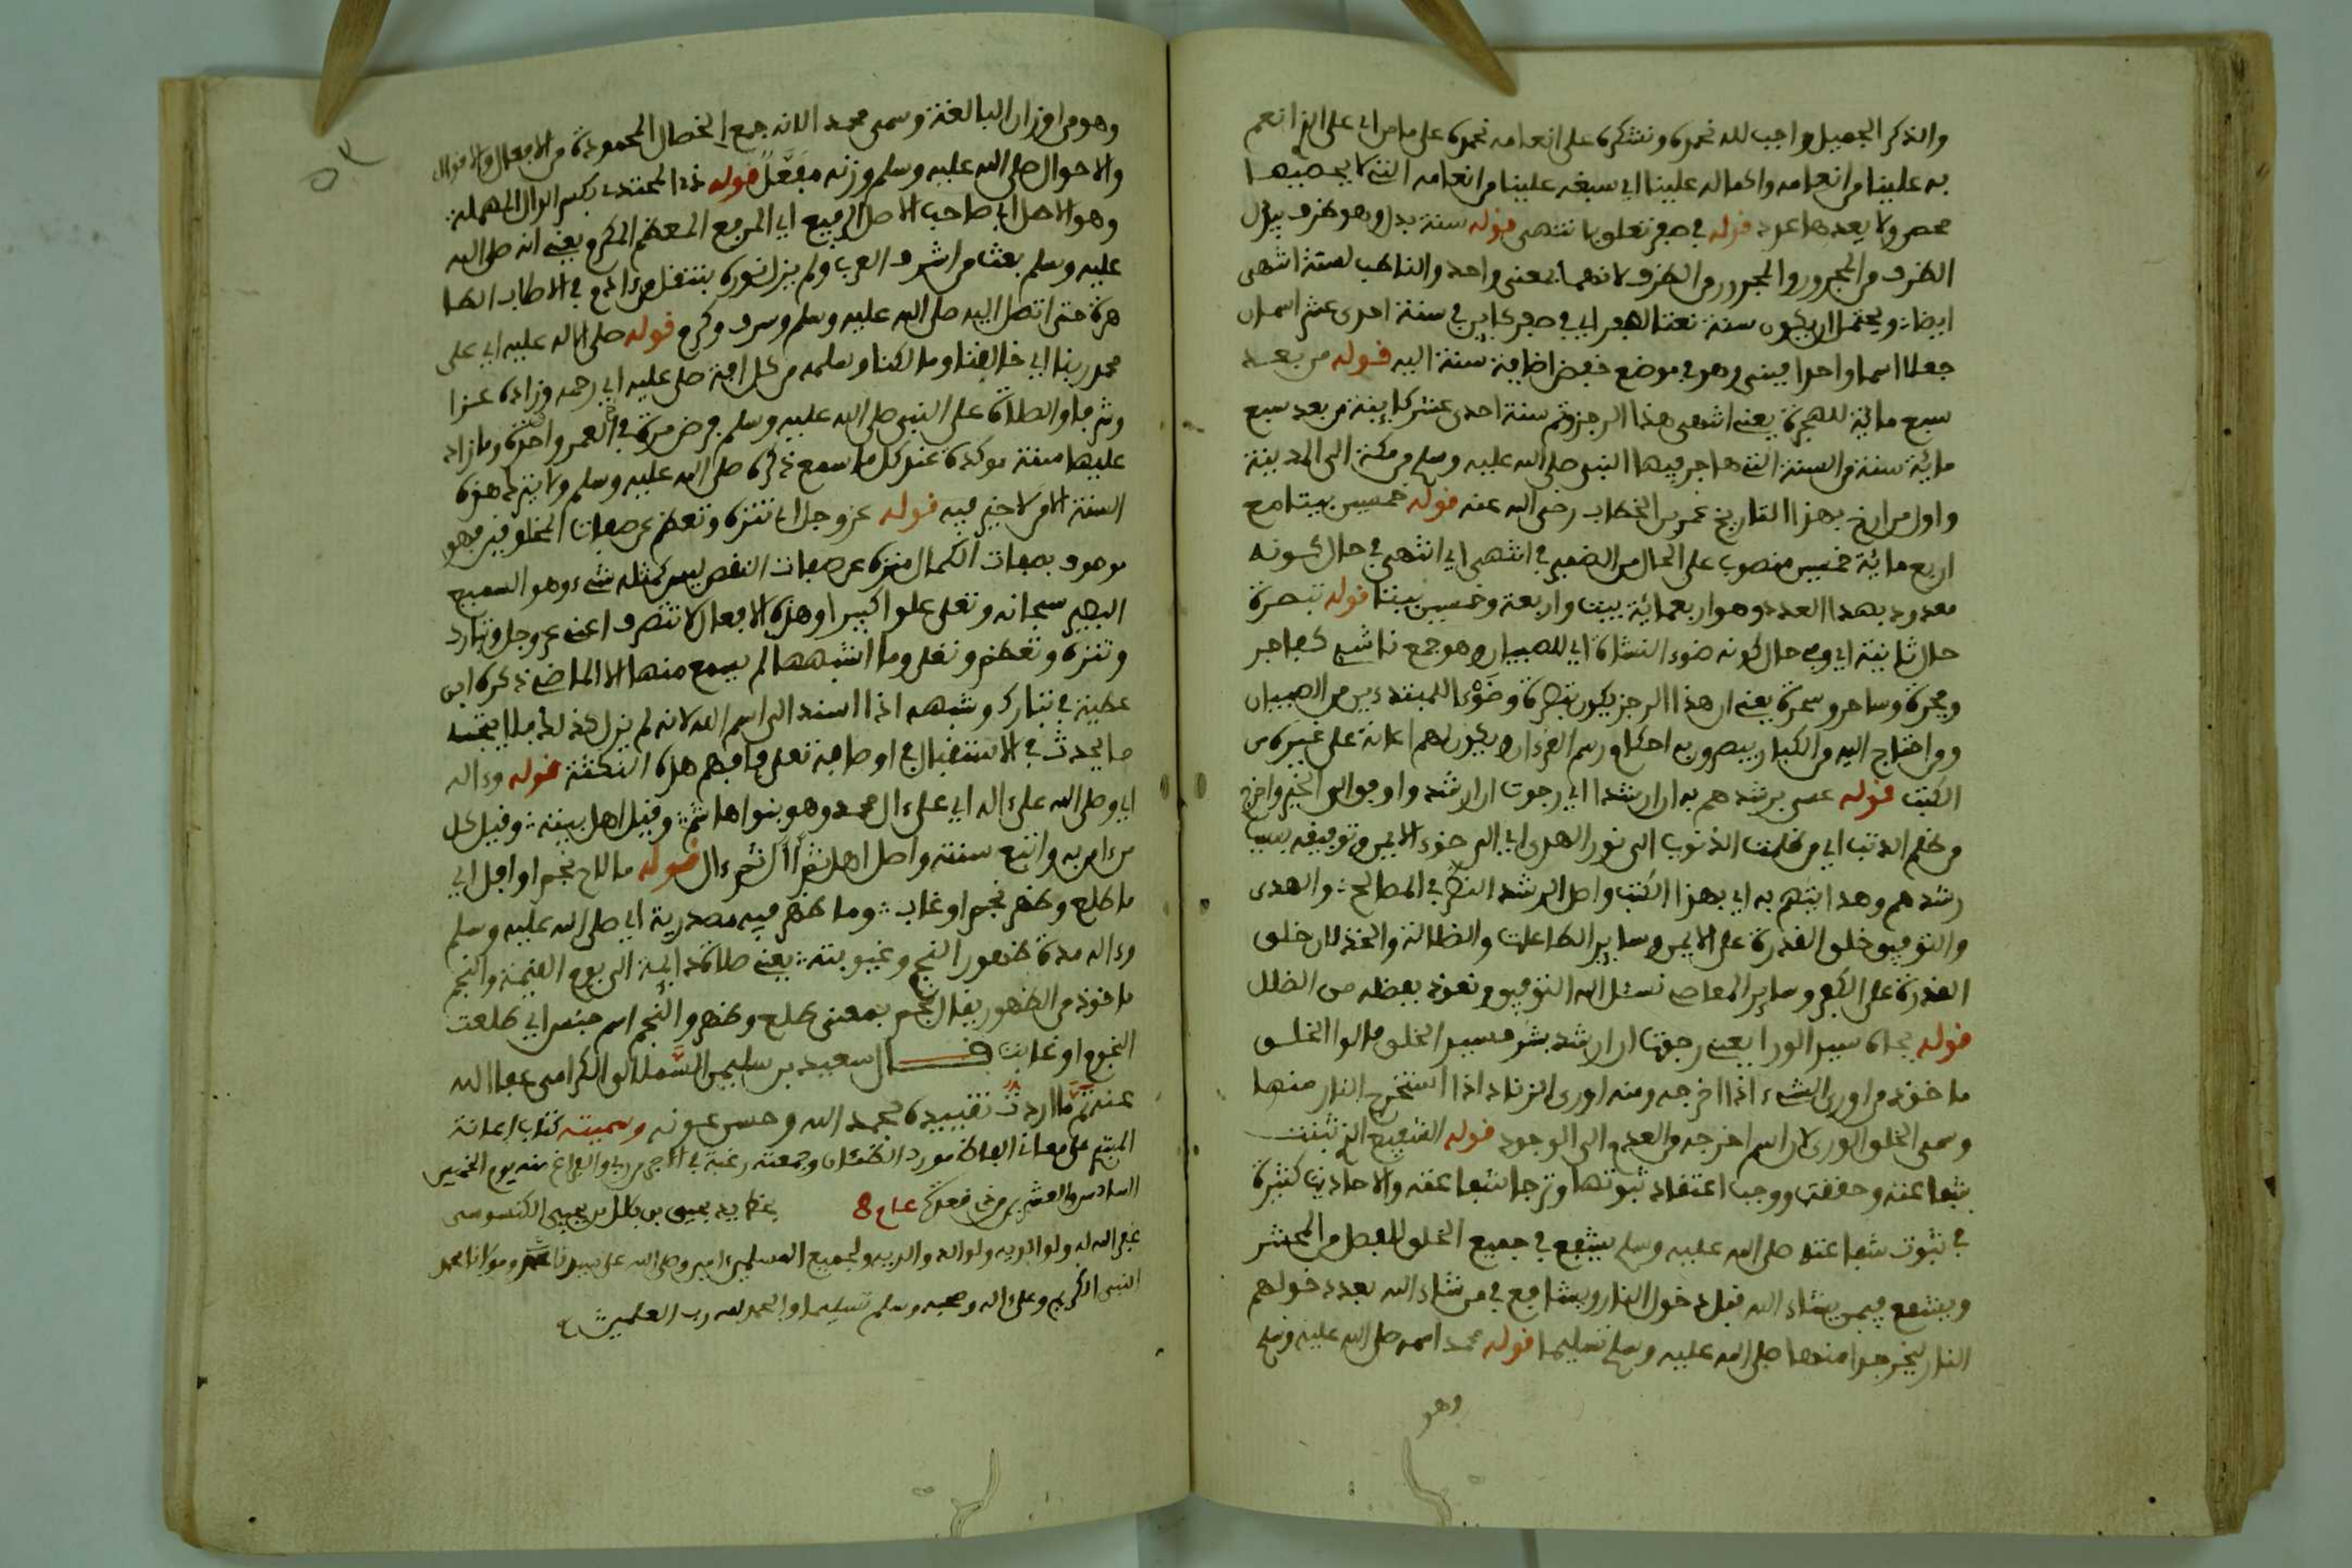 والذكر الجميل واجب لله نحمده ونشكره على انعامه نحمده على ما من اي على الذي انعم
به علينا من انعامه واكماله علينا اي سبغه علينا من انعامه التي لا يحصيها
محص ولا يعدها عاد قوله في صفر تعلق بانتهى قوله سنة بدل وهو ظرف يبدل
الظرف من المجرور والمجرور من الظرف لانهما بمعنى واحد والناصب لسنة انتهى
ايضا ويحتمل ان يكون سنة نعتا لصفر اي في صفر كاين في سنة احدى عشر اسمان
جعلا اسما واحدا فبني وهو في موضع خفض اضافة سنة اليه قوله من بعد
سبع مائة للهجرة يعني انتهى هذا الرجز وتم سنة احدى عشر كاينة من بعد سبع
مائة سنة من السنة التي هاجر فيها النبي صلى الله عليه وسلم من مكة الى المدينة
واول من ارخ بهذا التاريخ عمر بن الخطاب رضي الله عنه قوله خمسين بيتا مع
اربع مائة خمسين منصوب على الحال من الضمير في انتهى اي انتهى في حال كونه
معدود بهذا العدد وهو اربعمائة بيت واربعة وخمسين بيتا قوله تبصرة
حال ثانية اي وفي حال كونه ضوء النشاة اي للصبيان وهو جمع ناشئ كفاجر
وفجرة وساحر وسحرة يعني ان هذا الرجز يكون تبصرة وضوءا للمبتدءين من الصبيان
ومن احتاج اليه من الكبار يبصرون به احكام رسم القرءان ويكون لهم اعانة على غيره من
الكتب قوله عسى برشدهم به ان ارشدا اي رجوت ان ارشد واوفق الى الخير واخرج
من ظلم الذنب اي من ظلمت الذنوب الى نور الهدى اي الى ضوء الايمن وتوفيقه بسبب
رشدهم وهدايتهم به اي بهذا الكتب واصل الرشد النظر في المصالح والهدى
والتوفيق خلق القدرة على الايمن وساير الطاعات والضلالة والخذلان خلق
القدرة على الكفر وساير المعاصي نسئل الله التوفيق ونعوذ بفضله من الضلل
قوله بجاه سيد الورا يعني رجوت ان ارشد بشرف سيد الخلق قالوا الخلق
ماخوذ من اورى الشيء اذا اخرجه ومنه اورى الزناد اذا استخرج النار منها
وسمي الخلق الورى لان اسم اخرجه من العدم الى الوجود قوله الشفيع الذي ثبتت
شفاعته وحققت ووجب اعتقاد ثبوتها وترجا شفاعته والاحاديث كثيرة
في ثبوت شفاعته صلى الله عليه وسلم يشفع في جميع الخلق للفصل من المحشر
ويشفع فيمن يشاء الله قبل دخول النار ويشافع في من شاء الله بعد دخولهم
النار ليخرجوا منها صلى الله عليه وسلم تسليما قوله محمد اسمه صلى الله عليه وسلم
وهو
وهو من اوزان المبالغة وسمي محمد الانه جمع الخصال المحمودة من الافعال والاقوال
والاحوال صلى الله عليه وسلم وزنه مفعل قوله ذي المحتد بكسر الدال المهملة
وهو الاصل اي صاحب الاصل الرفيع اي المرفع المعظم المكرم يعني انه صلى الله
عليه وسلم بعث من اشرف العرب ولم يزل نوره ينتقل من ءادم في الاصلاب الطا
هرة حتى اتصل اليه صلى الله عليه وسلم وشرف وكرم قوله صلى الله عليه اي على
محمد ربنا اي خالقنا ومالكنا وسلمه من كل افة صلى عليه اي رحمه وزاده عزا
وشرفا والصلاة على النبي صلى الله عليه وسلم فرض مرة في العمر واحدة وما زاد
عليها سنة موكدة عند كل ما سمع ذكره صلى الله عليه وسلم ولا يترك هذه
السنة الا من لا خير فيه قوله عز وجل اي تنزه وتعظم عن صفات المخلوقين فهو
موصوف بصفات الكمال منزه عن صفات النقص ليس كمثله شيء وهو السميع
البصير سبحانه وتعلى علوا كبيرا وهذه الافعال لا تتصرف اعني عز وجل وتبارك
وتنزه وتعظم وتعلى وما اشبهها لم يسمع منها الا الماضي ذكره ابن
عطية في تبارك وشبهه اذا اسند الى اسم الله لانه لم يزل كذلك فلا يحتمل
ما يحدث في الاستقبال في اوصافه تعلى فافهم هذه النكتة قوله وءاله
اي وصلى الله على ءاله اي على ءال محمد وهو بنوا هاشم وقيل اهل بيته وقيل كل
من ءامن به واتبع سنته واصل اهل ثم أأل ثم ءال قوله ما لاح نجم او افل اي
ما طلع وظهر نجم او غاب وما ظهر فيه مصدرية اي صلى الله عليه وسلم
وءاله مدة ظهور النجم وغيبوبته يعني صلاة دايمة الى يوم القيمة والنجم
ماخوذ من الظهور يقال نجم بمعنى طلع وظهر والنجم اسم جنس اي طلعت
النجوم او غابت قال سعيد بن سليمن السملالي الكرامي عفا الله
عنه تم ما اردت تقييده بحمد الله وحسن عونه وسميته كتاب اعانة
المبتدي على معاني الفاظ مورد الظمئان وجمعته رغبة في الاجر من ربي والفراغ منه يوم الخميس
السادس والعشرين من ذي قعدة عام 8 بخط يد يحيى بن بلل بن يحيى الكنسوسي
غفر الله له ولوالديه ولوالد والديه ولجميع المسلمين امين وصلى الله على سيدنا ومولانا محمد
النبي الكريم وعلى ءاله وصحبه وسلم تسليما والحمد لله رب العلمين